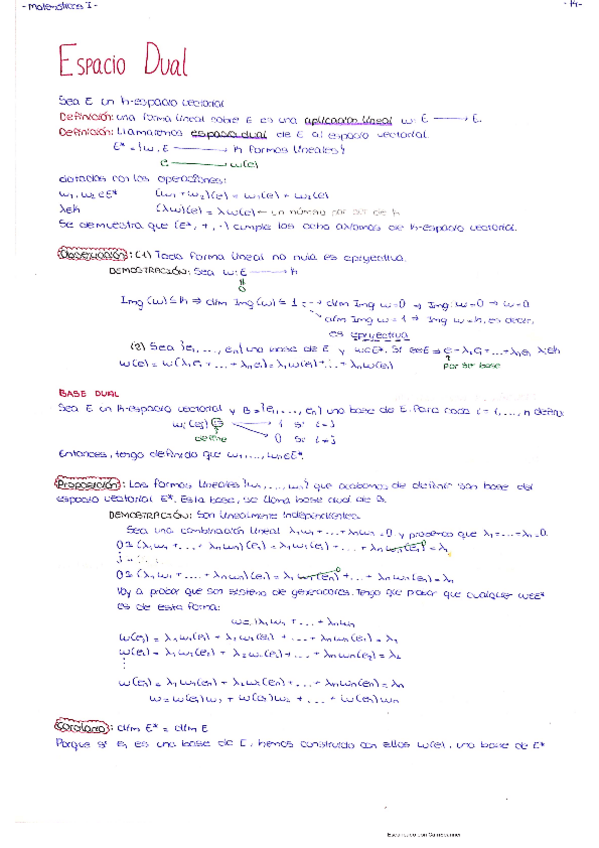 - Matemáticas I -
- 14 -
Espacio Dual
Sea E un k-espacio vectorial
Definición: una forma lineal sobre E es una aplicación lineal w: E ⟶ E.
Definición: Llamaremos espacio dual de E al espacio vectorial.
E* = {w: E ⟶ k formas lineales}
e ⟶ w(e)
dotadas con las operaciones:
w₁, w₂ ∈ E* (w₁ + w₂)(e) = w₁(e) + w₂(e)
λ∈k (λw)(e) = λw(e) ← un número por ser de k
Se demuestra que (E*, +, ·) cumple los ocho axiomas de k-espacio vectorial.
Observación: (1) Toda forma lineal no nula es epiyectiva.
DEMOSTRACIÓN: Sea w: E ⟶ k
0
Img (w) ≤ k ⇒ dim Img (w) ≤ 1 : → dim Img w = 0 → Img w = 0 → w = 0
dim Img w = 1 → Img w = k, es decir,
es epiyectiva
(2) Sea {e₁, ..., eₙ} una base de E y w∈E*. Si e∈E ⇒ e = λ₁e₁ + ... + λₙeₙ λi∈k
w(e) = w(λ₁e₁ + ... + λₙeₙ) = λ₁w(e₁) + ... + λₙw(eₙ) por ser base
BASE DUAL
Sea E un k-espacio vectorial y B = {e₁, ..., eₙ} una base de E. Para cada i = 1, ..., n
wᵢ(eⱼ) = 1 si i = j
define 0 si i ≠ j
Entonces, tengo definido que w₁, ..., wₙ ∈ E*.
Proposición: Las formas lineales {w₁, ..., wₙ} que acabamos de definir son base del
espacio vectorial E*. Esta base, se llama base dual de B.
DEMOSTRACIÓN: Son linealmente independientes.
Sea una combinación lineal λ₁w₁ + ... + λₙwₙ = 0 y probemos que λ₁ = ... = λₙ = 0.
0 = (λ₁w₁ + ... + λₙwₙ)(e₁) = λ₁w₁(e₁) + ... + λₙwₙ(e₁) = λ₁
0 = (λ₁w₁ + ... + λₙwₙ)(eₙ) = λ₁w₁(eₙ) + ... + λₙwₙ(eₙ) = λₙ
Voy a probar que son sistema de generadores. Tengo que probar que cualquier w∈E*
es de esta forma:
w = λ₁w₁ + ... + λₙwₙ
w(e₁) = λ₁w₁(e₁) + λ₂w₂(e₁) + ... + λₙwₙ(e₁) = λ₁
w(e₂) = λ₁w₁(e₂) + λ₂w₂(e₂) + ... + λₙwₙ(e₂) = λ₂
⋮
w(eₙ) = λ₁w₁(eₙ) + λ₂w₂(eₙ) + ... + λₙwₙ(eₙ) = λₙ
w = w(e₁)w₁ + w(e₂)w₂ + ... + w(eₙ)wₙ
Corolario: dim E* = dim E
Porque si eᵢ es una base de E, hemos construido con ellos w(e), una base de E*
Escaneado con CamScanner